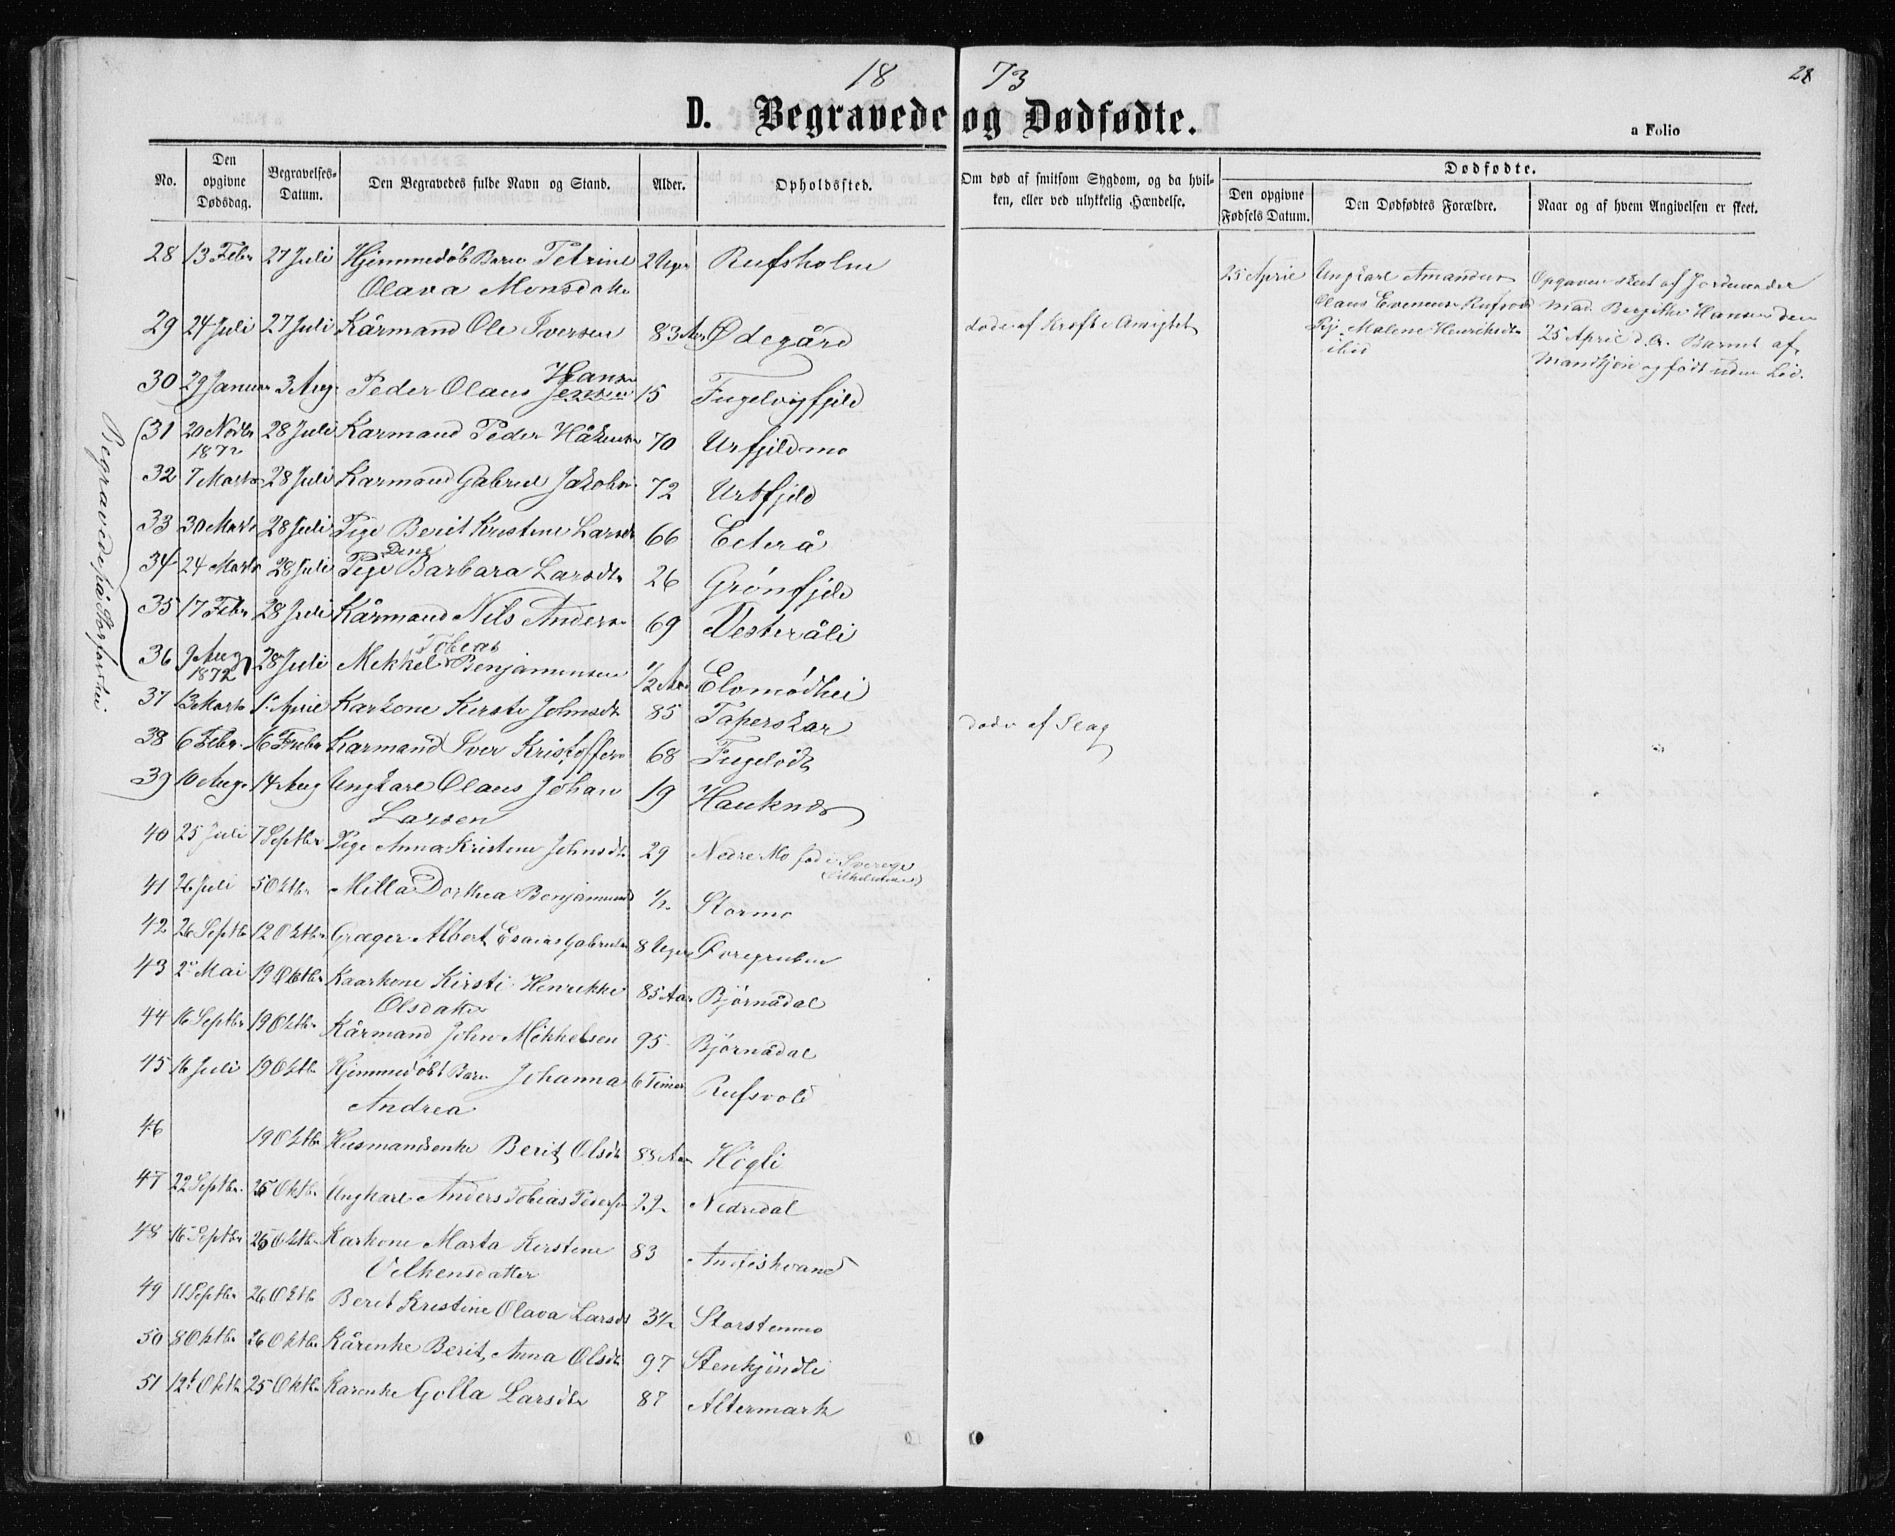 18 73
28
D. Begravede og Dødfødte.
a Folio
No.
Den opgivne Dødsdag.
Begravelses-Datum.
Den Begravedes fulde Navn og Stand.
Alder.
Opholdssted.
Om død af smitsom Sygdom, og da hvilken, eller ved ulykkelig Hændelse.
Dødfødte.
Den opgivne Fødsels Datum.
Den Dødfødtes Forældre.
Naar og af hvem Angivelsen er skeet.
28 13 Febr 27 Juli Hjemmedøb Barn Petrine 2 Uger Rufsholm
Olava Monsdatter
25 April Ungkarl Amandus
Olaus Evensen Rufsvold
Pig. Malene Henriksdtr
ibid
Opgaven skeet af Jordmoder
Mad. Bergitte Hansen den
25 April d. A. Barnet af
Mandkjøn og født uden Liv.
29 24 Juli 27 Juli Kårmand Ole Iversen 83 Aar Ødegård døde af Kræft i Ansigtet
30 29 Januar 3 Aug. Peder Olaus Jensen Hansen 15 Fugelvigfjeld
Begravede på Storforshei
31 20 Novbr 1872 28 Juli Karmand Peder Håkensen 70 Urfjeldmo
32 7 Marts 28 Juli Karmand Gabriel Jakobsen 72 Urtfjeld
33 30 Marts 28 Juli Pige Berit Kristine Larsdtr 66 Eiterå
34 24 Marts 28 Juli Pige Dine Barbara Larsdtr 26 Grönfjeld
35 17 Febr 28 Juli Kårmand Nils Andersen 69 Vesteråli
36 9 Aug 1872 28 Juli Mekkel Tobias Benjaminsen 1/2 Aar Elvmødhei
37 13 Marts 1 April Karkone Kirsti Johnsdtr 85 Taperskar døde af Slag
38 6 Febr. 16 Febr Karmand Iver Kristoffersen 68 Fugelødt
39 10 Aug. 14 Aug Ungkarl Olaus Johan 19 Hauknæs
Larsen
40 25 Juli 7 Septbr Pige Anna Kristine Johnsdtr 29 Nedre Mo fød i Sverige
41 26 Juli 5 Oktbr Milla Dorthea Benjaminsd 1/2 Stormo
42 26 Septbr 12 Oktbr Græger Albert Esaias Gabrielsen 8 Uger Gorgruben
43 2 Mai 19 Oktbr Kaarkone Kirsti Henrikke 85 Aar Björnådal
Olsdatter
44 16 Septbr 19 Oktbr Kårmand John Mikkelsen 95 Björnådal
45 16 Juli 19 Oktbr Hjemmedøbt Barn Johanna 6 Timer Rufsvold
Andrea
46 19 Oktbr Husmandsenke Berit Olsdtr 88 Aar Högli
47 22 Septbr. 25 Oktbr Ungkarl Anders Tobias Pedersen 22 Nedredal
48 16 Septbr 26 Oktbr Karkone Marta Kirstine 83 Andfiskvand
Velkensdatter
49 11 Septbr 26 Oktbr Berit Kristine Olava Larsdt 3 1/2 Storstenmo
50 8 Oktbr 26 Oktbr Kårenke Berit Anna Olsdtr 97 Stenkjindli
51 12 Oktbr 25 Oktbr Karenke Golla Larsdtr 87 Altermark